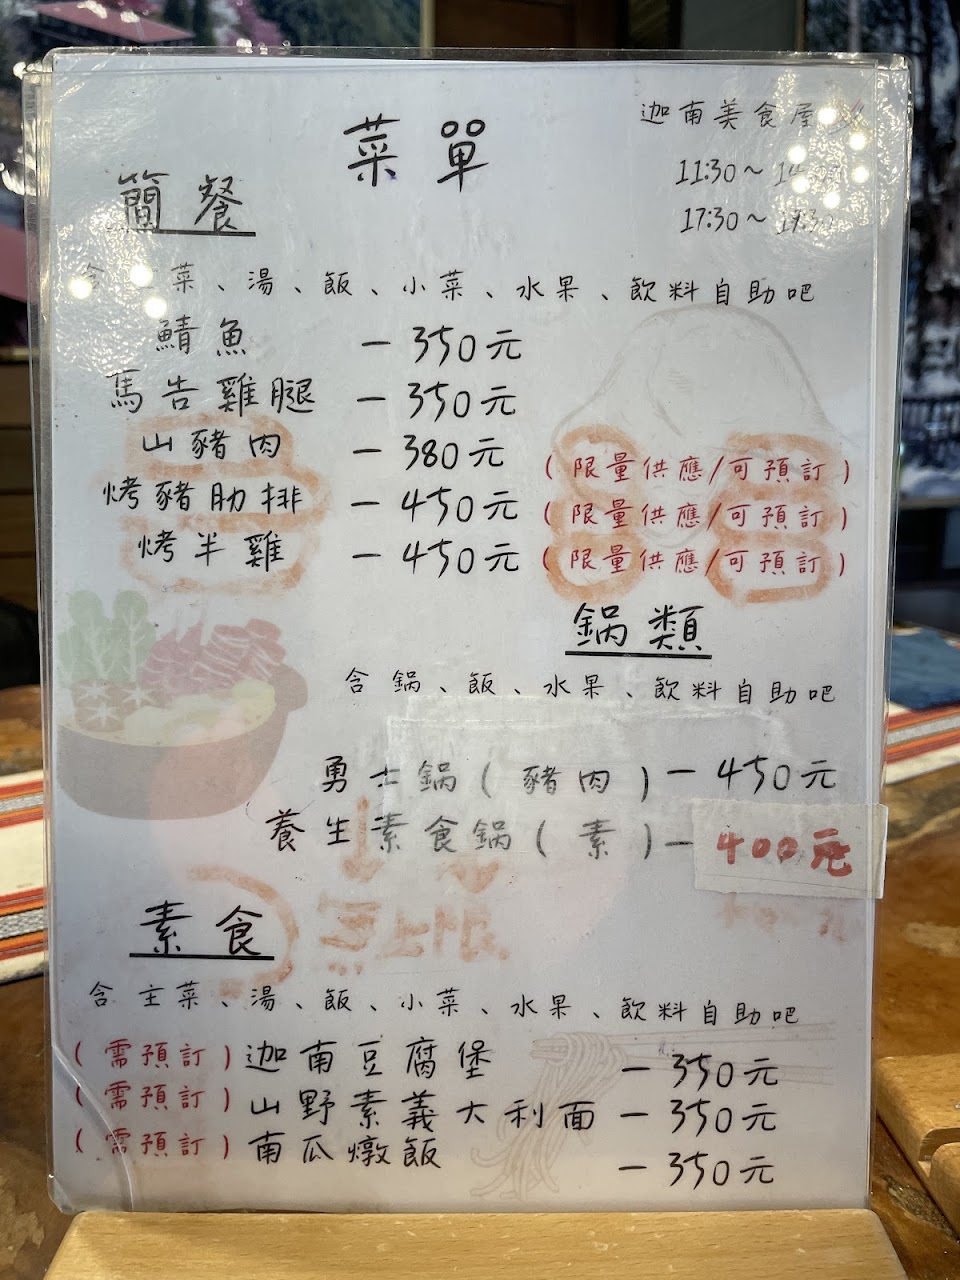 菜單
迦南美食屋
11:30～
17:30～
簡餐
含主菜、湯、飯、小菜、水果、飲料自助吧
鯖魚 — 350元
馬告雞腿 — 350元
山豬肉 — 380元 (限量供應/可預訂)
烤豬肋排 — 450元 (限量供應/可預訂)
烤半雞 — 450元 (限量供應/可預訂)
鍋類
含鍋、飯、水果、飲料自助吧
勇士鍋(豬肉) — 450元
養生素食鍋(素) — 400元
素食
含主菜、湯、飯、小菜、水果、飲料自助吧
(需預訂) 迦南豆腐堡 — 350元
(需預訂) 山野素義大利面 — 350元
(需預訂) 南瓜燉飯 — 350元